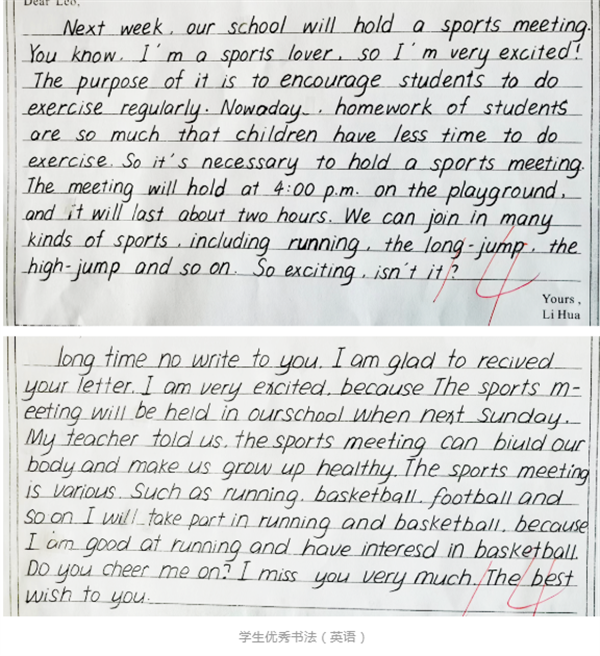 Dear Leo,
Next week, our school will hold a sports meeting.
You know, I'm a sports lover, so I'm very excited!
The purpose of it is to encourage students to do
exercise regularly. Nowaday, homework of students
are so much that children have less time to do
exercise. So it's necessary to hold a sports meeting.
The meeting will hold at 4:00 p.m. on the playground,
and it will last about two hours. We can join in many
kinds of sports, including running, the long-jump, the
high-jump and so on. So exciting, isn't it?
14
Yours,
Li Hua
long time no write to you. I am glad to recived
your letter. I am very excited, because The sports m-
eeting will be held in ourschool when next Sunday.
My teacher told us, the sports meeting can biuld our
body and make us grow up healthy. The sports meeting
is various. Such as running, basketball, football and
so on I will take part in running and basketball, because
I am good at running and have interesd in basketball.
Do you cheer me on? I miss you very much. The best
wish to you.
14
学生优秀书法（英语）